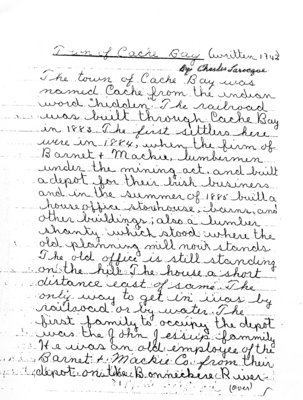 Town of Cache Bay (written 1942
By Charles Larocque
The town of Cache Bay was
named Cache from the indian
word "hidden" The railroad
was built through Cache Bay
in 1883. The first settlers here
were in 1884, when the firm of
Barnet & Mackie, lumbermen
under the mining act, and built
a depot for their bush business
and in the summer of 1885 built a
house office storhouse, barns, and
other buildings; also a lumber
shanty which stood where the
old planning mill now stands
The old office is still standing
on the hill. The house a short
distance east of same. The
only way to get in was by
railroad or by water. The
first family to occupy the depot
was the John Jessup fammily
He was an old employee of the
Barnet & Mackie Co. from their
depot on the Bonnechere River
(over)